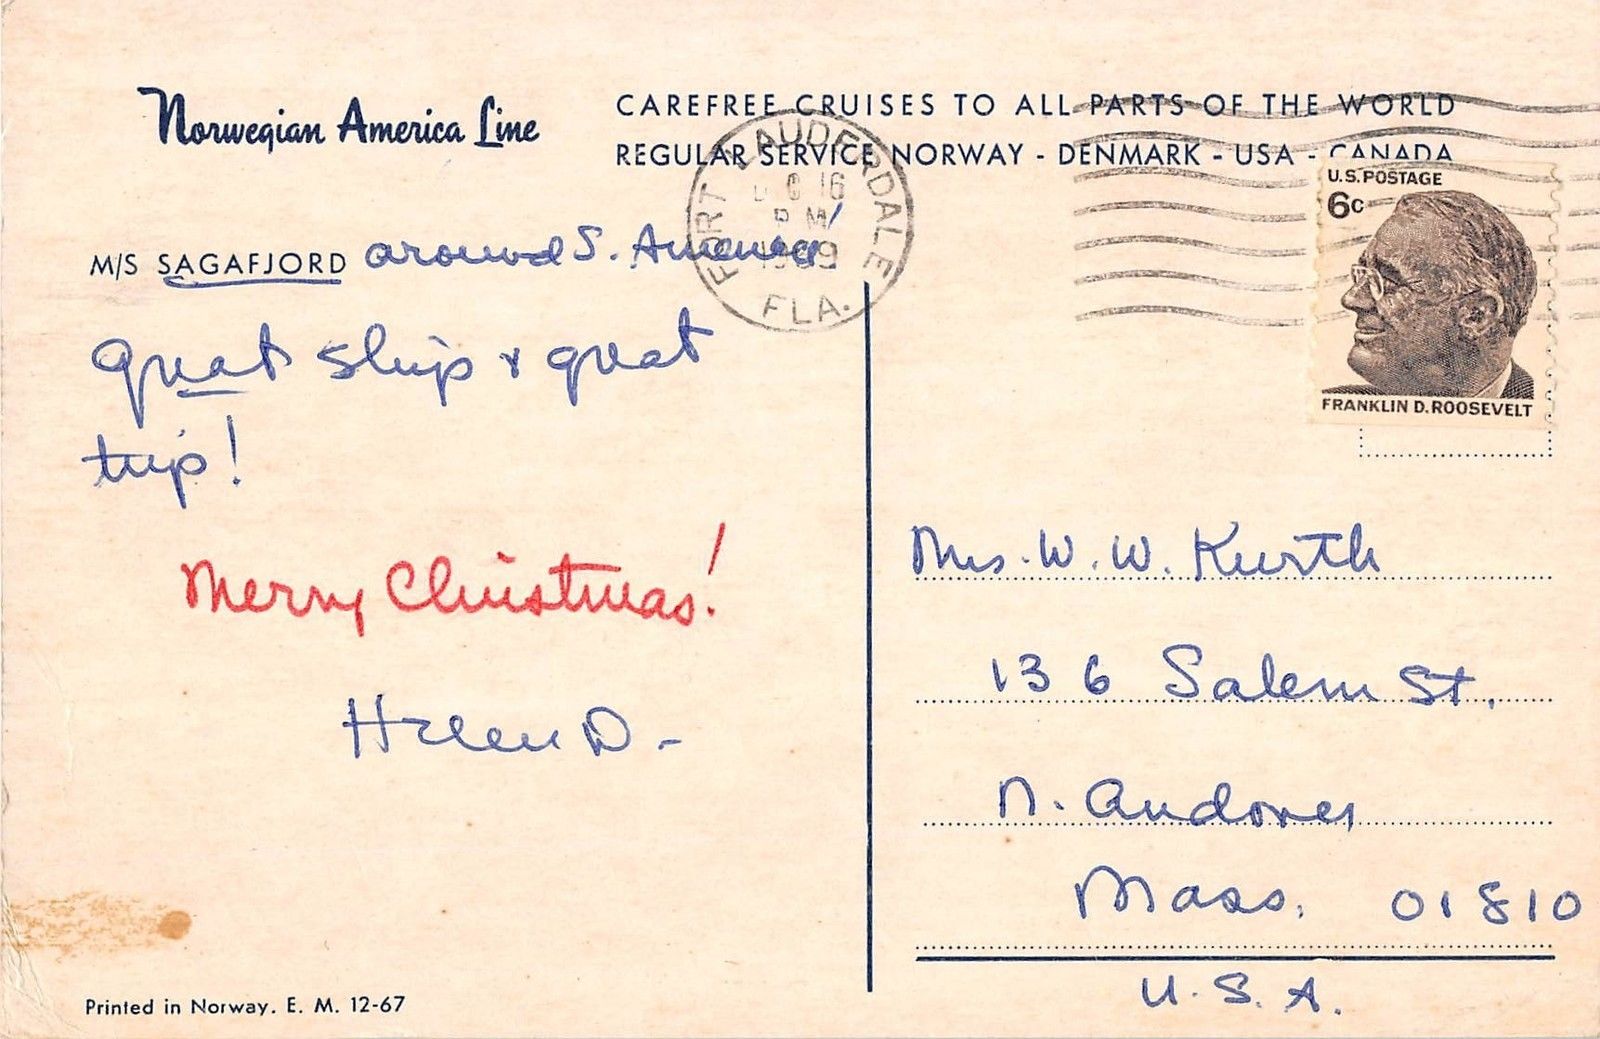 Norwegian America Line
CAREFREE CRUISES TO ALL PARTS OF THE WORLD
REGULAR SERVICE NORWAY - DENMARK - USA - CANADA
FORT LAUDERDALE
DEC 16
PM
1969
FLA.
U.S. POSTAGE
6c
FRANKLIN D. ROOSEVELT
M/S SAGAFJORD around S. America!
Great ship & great
trip!
Merry Christmas!
Helen D-
Mrs. W. W. Kurth
136 Salem St.
N. Andover
Mass. 01810
U.S.A.
Printed in Norway. E. M. 12-67